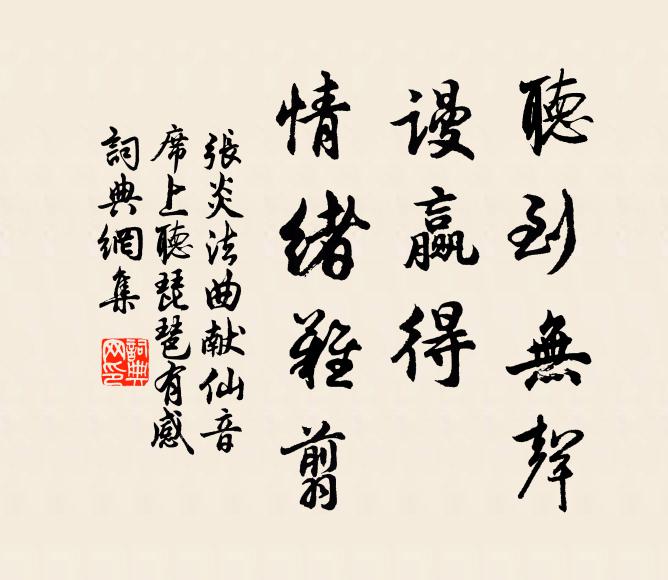 聽到無聲
謾贏得
情緒難翦
張炎法曲献仙音
席上聽琵琶有感
詞典網集
詞典網印